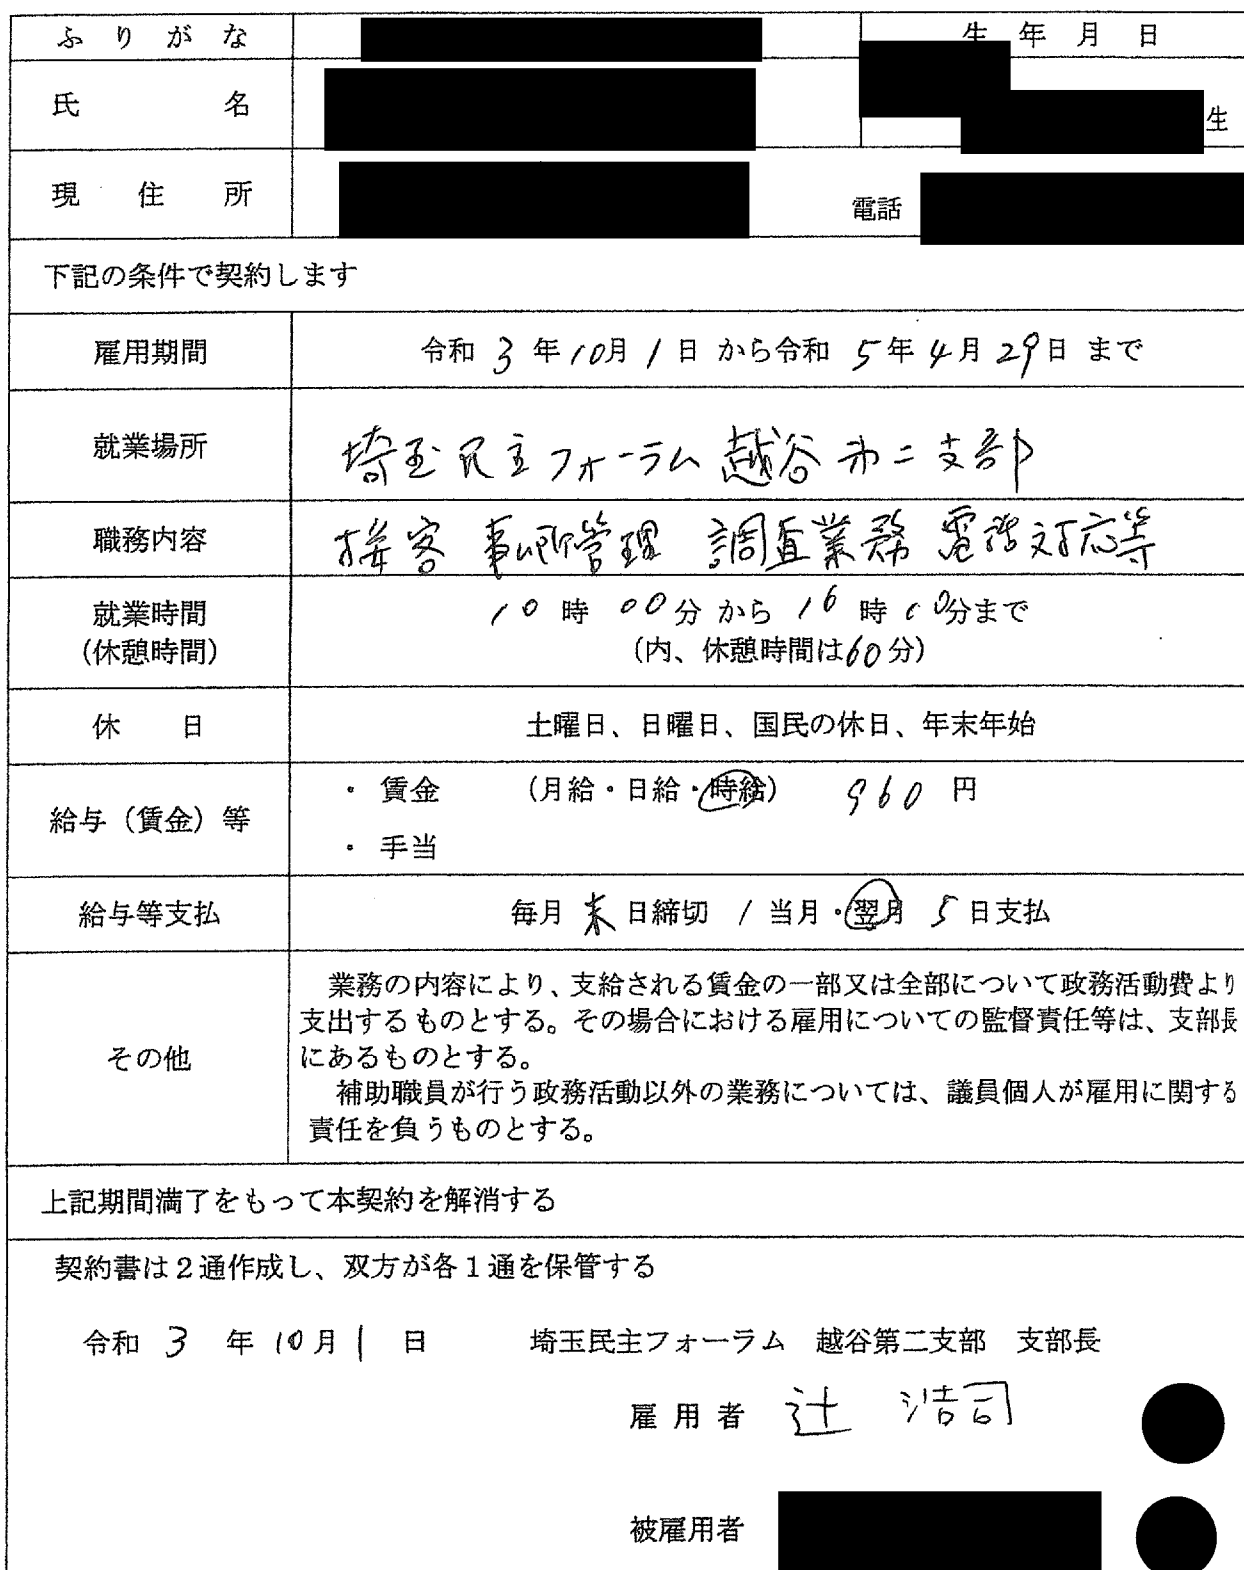 ふりがな
生年月日
氏名
生
現住所
電話
下記の条件で契約します
雇用期間
令和 3 年 10月 1 日 から令和 5 年 4 月 29日 まで
就業場所
埼玉民主フォーラム 越谷第二支部
職務内容
接客 事務所管理 調査業務 電話対応等
就業時間
(休憩時間)
10 時 00分 から 16 時 00分まで
(内、休憩時間は60分)
休日
土曜日、日曜日、国民の休日、年末年始
給与(賃金)等
・ 賃金 (月給・日給・時給) 960 円
・ 手当
給与等支払
毎月 末 日締切 / 当月・翌月 5 日支払
その他
業務の内容により、支給される賃金の一部又は全部について政務活動費より
支出するものとする。その場合における雇用についての監督責任等は、支部長
にあるものとする。
補助職員が行う政務活動以外の業務については、議員個人が雇用に関する
責任を負うものとする。
上記期間満了をもって本契約を解消する
契約書は2通作成し、双方が各1通を保管する
令和 3 年 10月 1 日
埼玉民主フォーラム 越谷第二支部 支部長
雇用者 辻 浩司
被雇用者